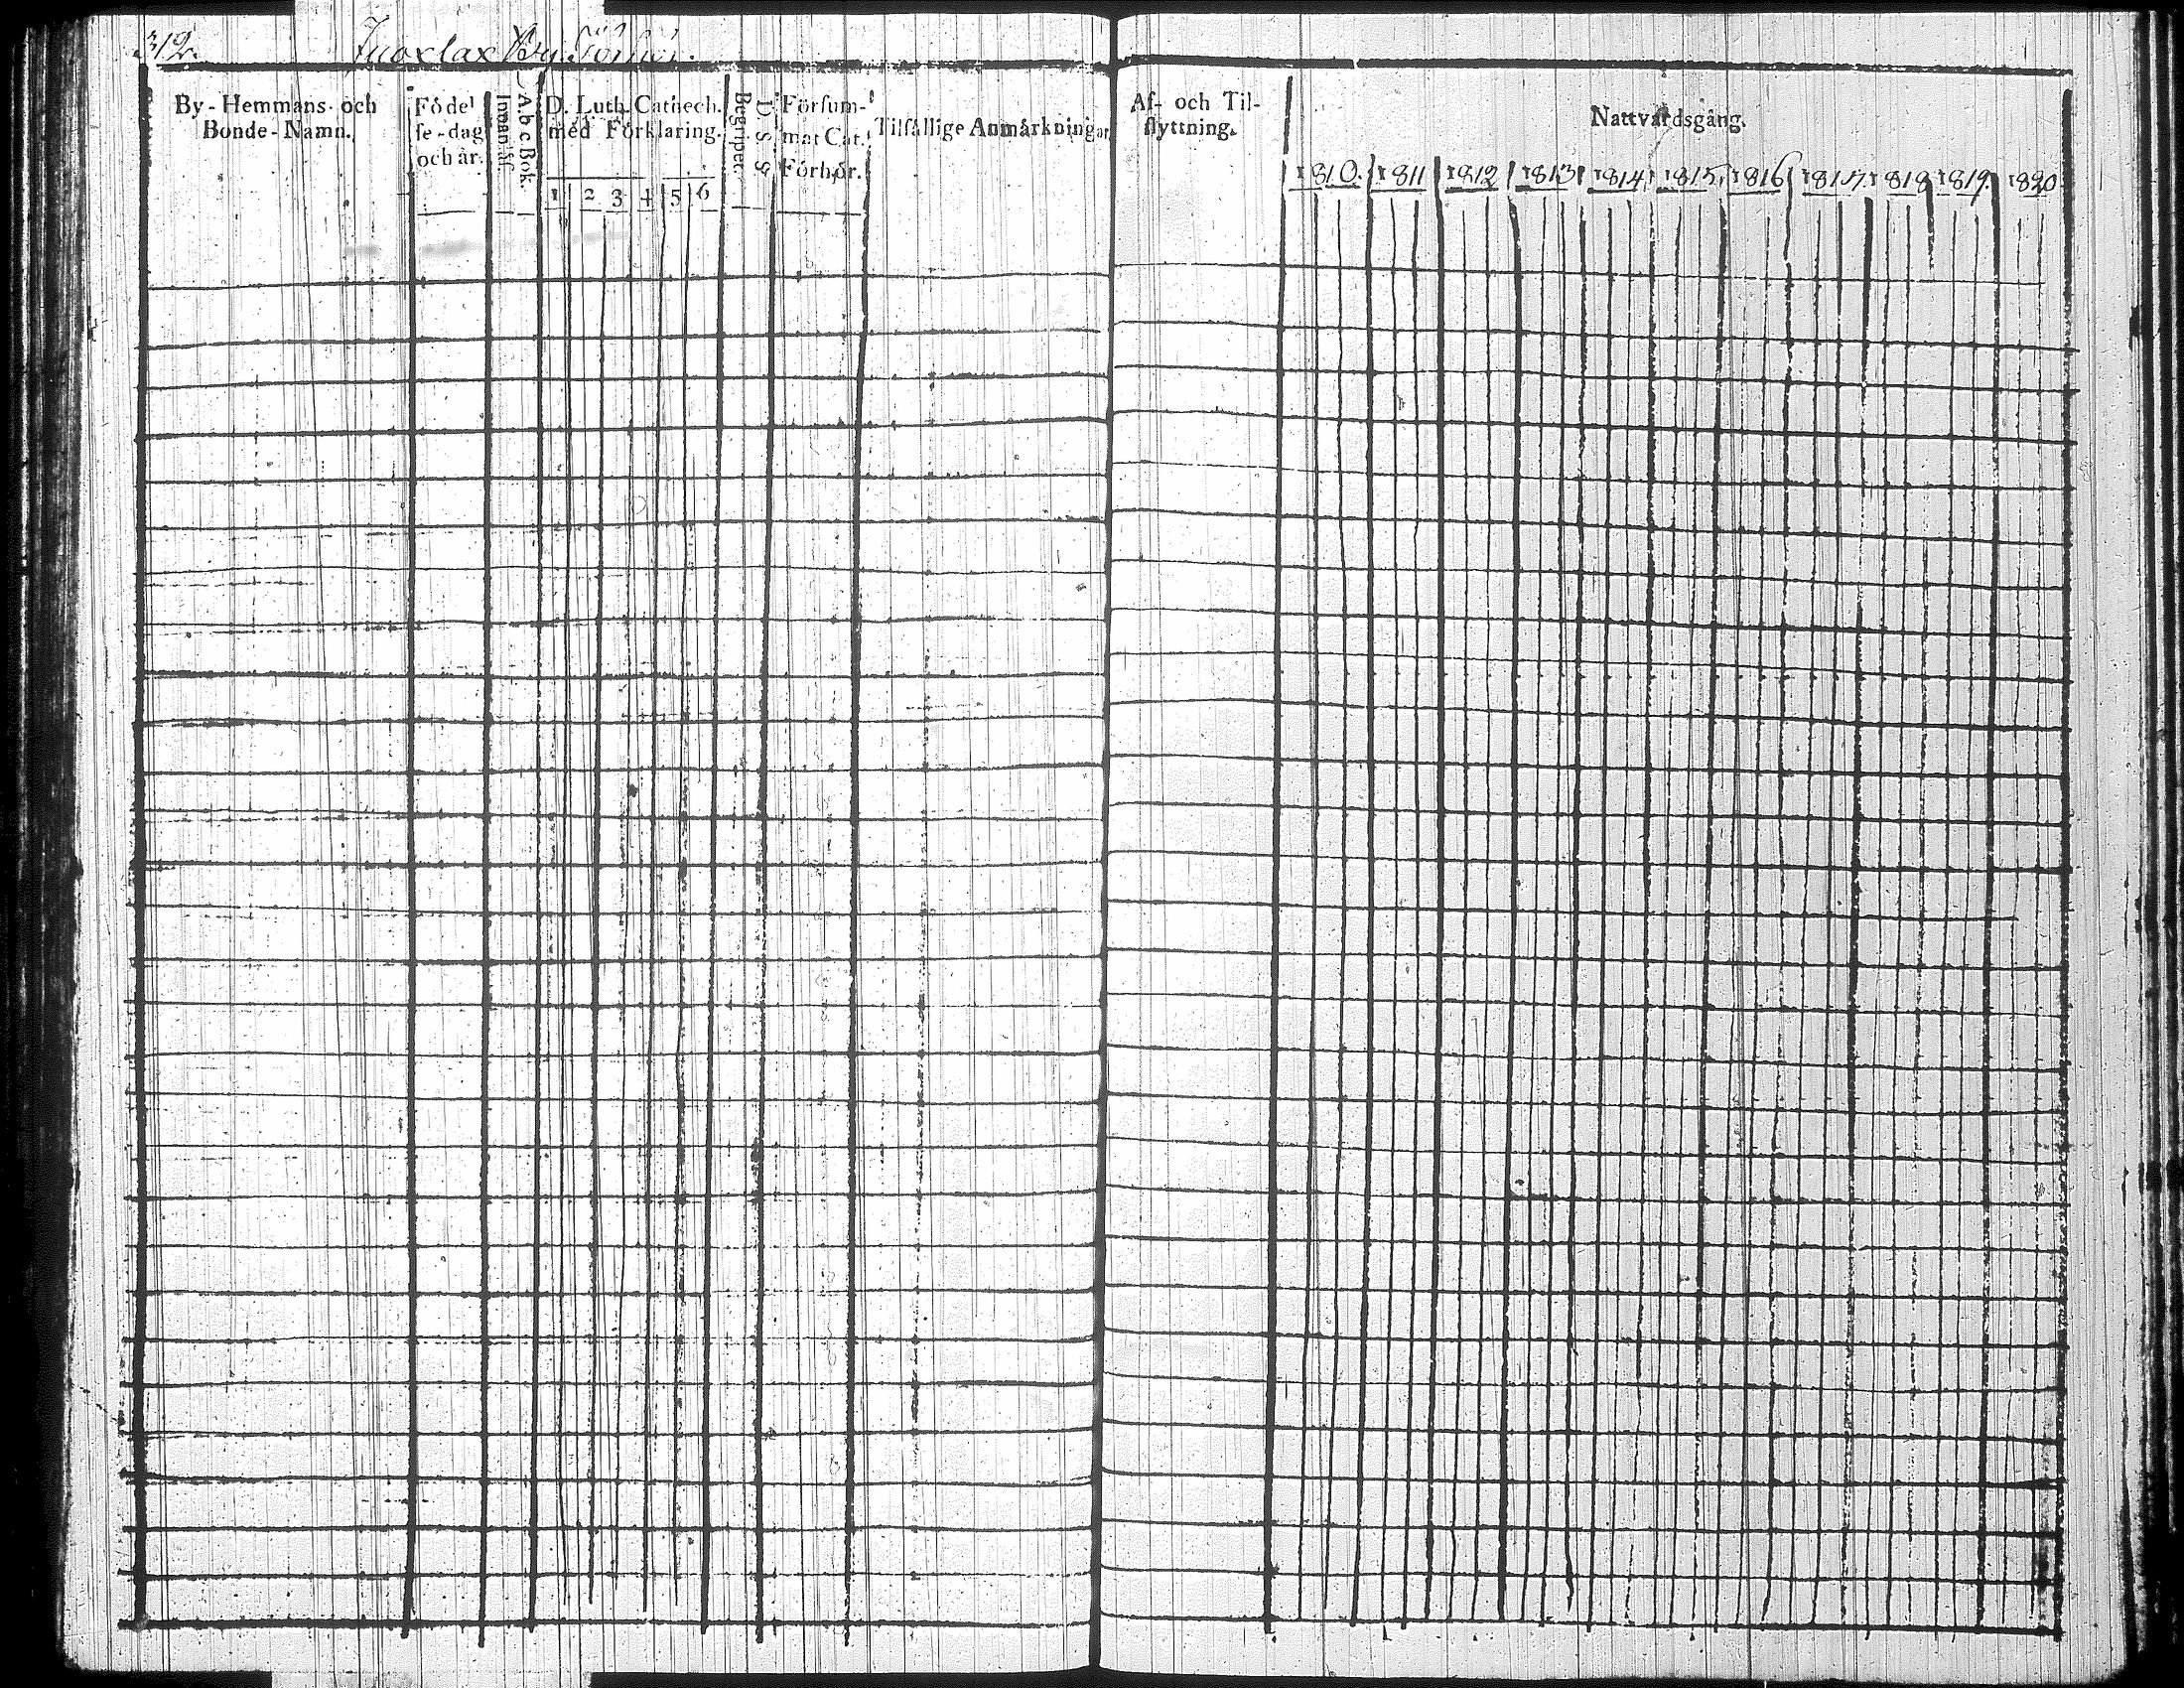 312.
Juoxlax By
By-Hemmans- och
Bonde-Namn.
Födel
se-dag
och år.
Innantil.
A b c Bok.
D. Luth. Cathech.
med Förklaring.
1 2 3 4 5 6
Begrepet.
D. S. S.
Försum-
mat Cat.
Förhör.
Tilfällige Anmärkningar
Af- och Til-
flyttning.
Nattvardsgång.
1810. 1811 1812 1813 1814 1815 1816 1817 1818 1819 1820